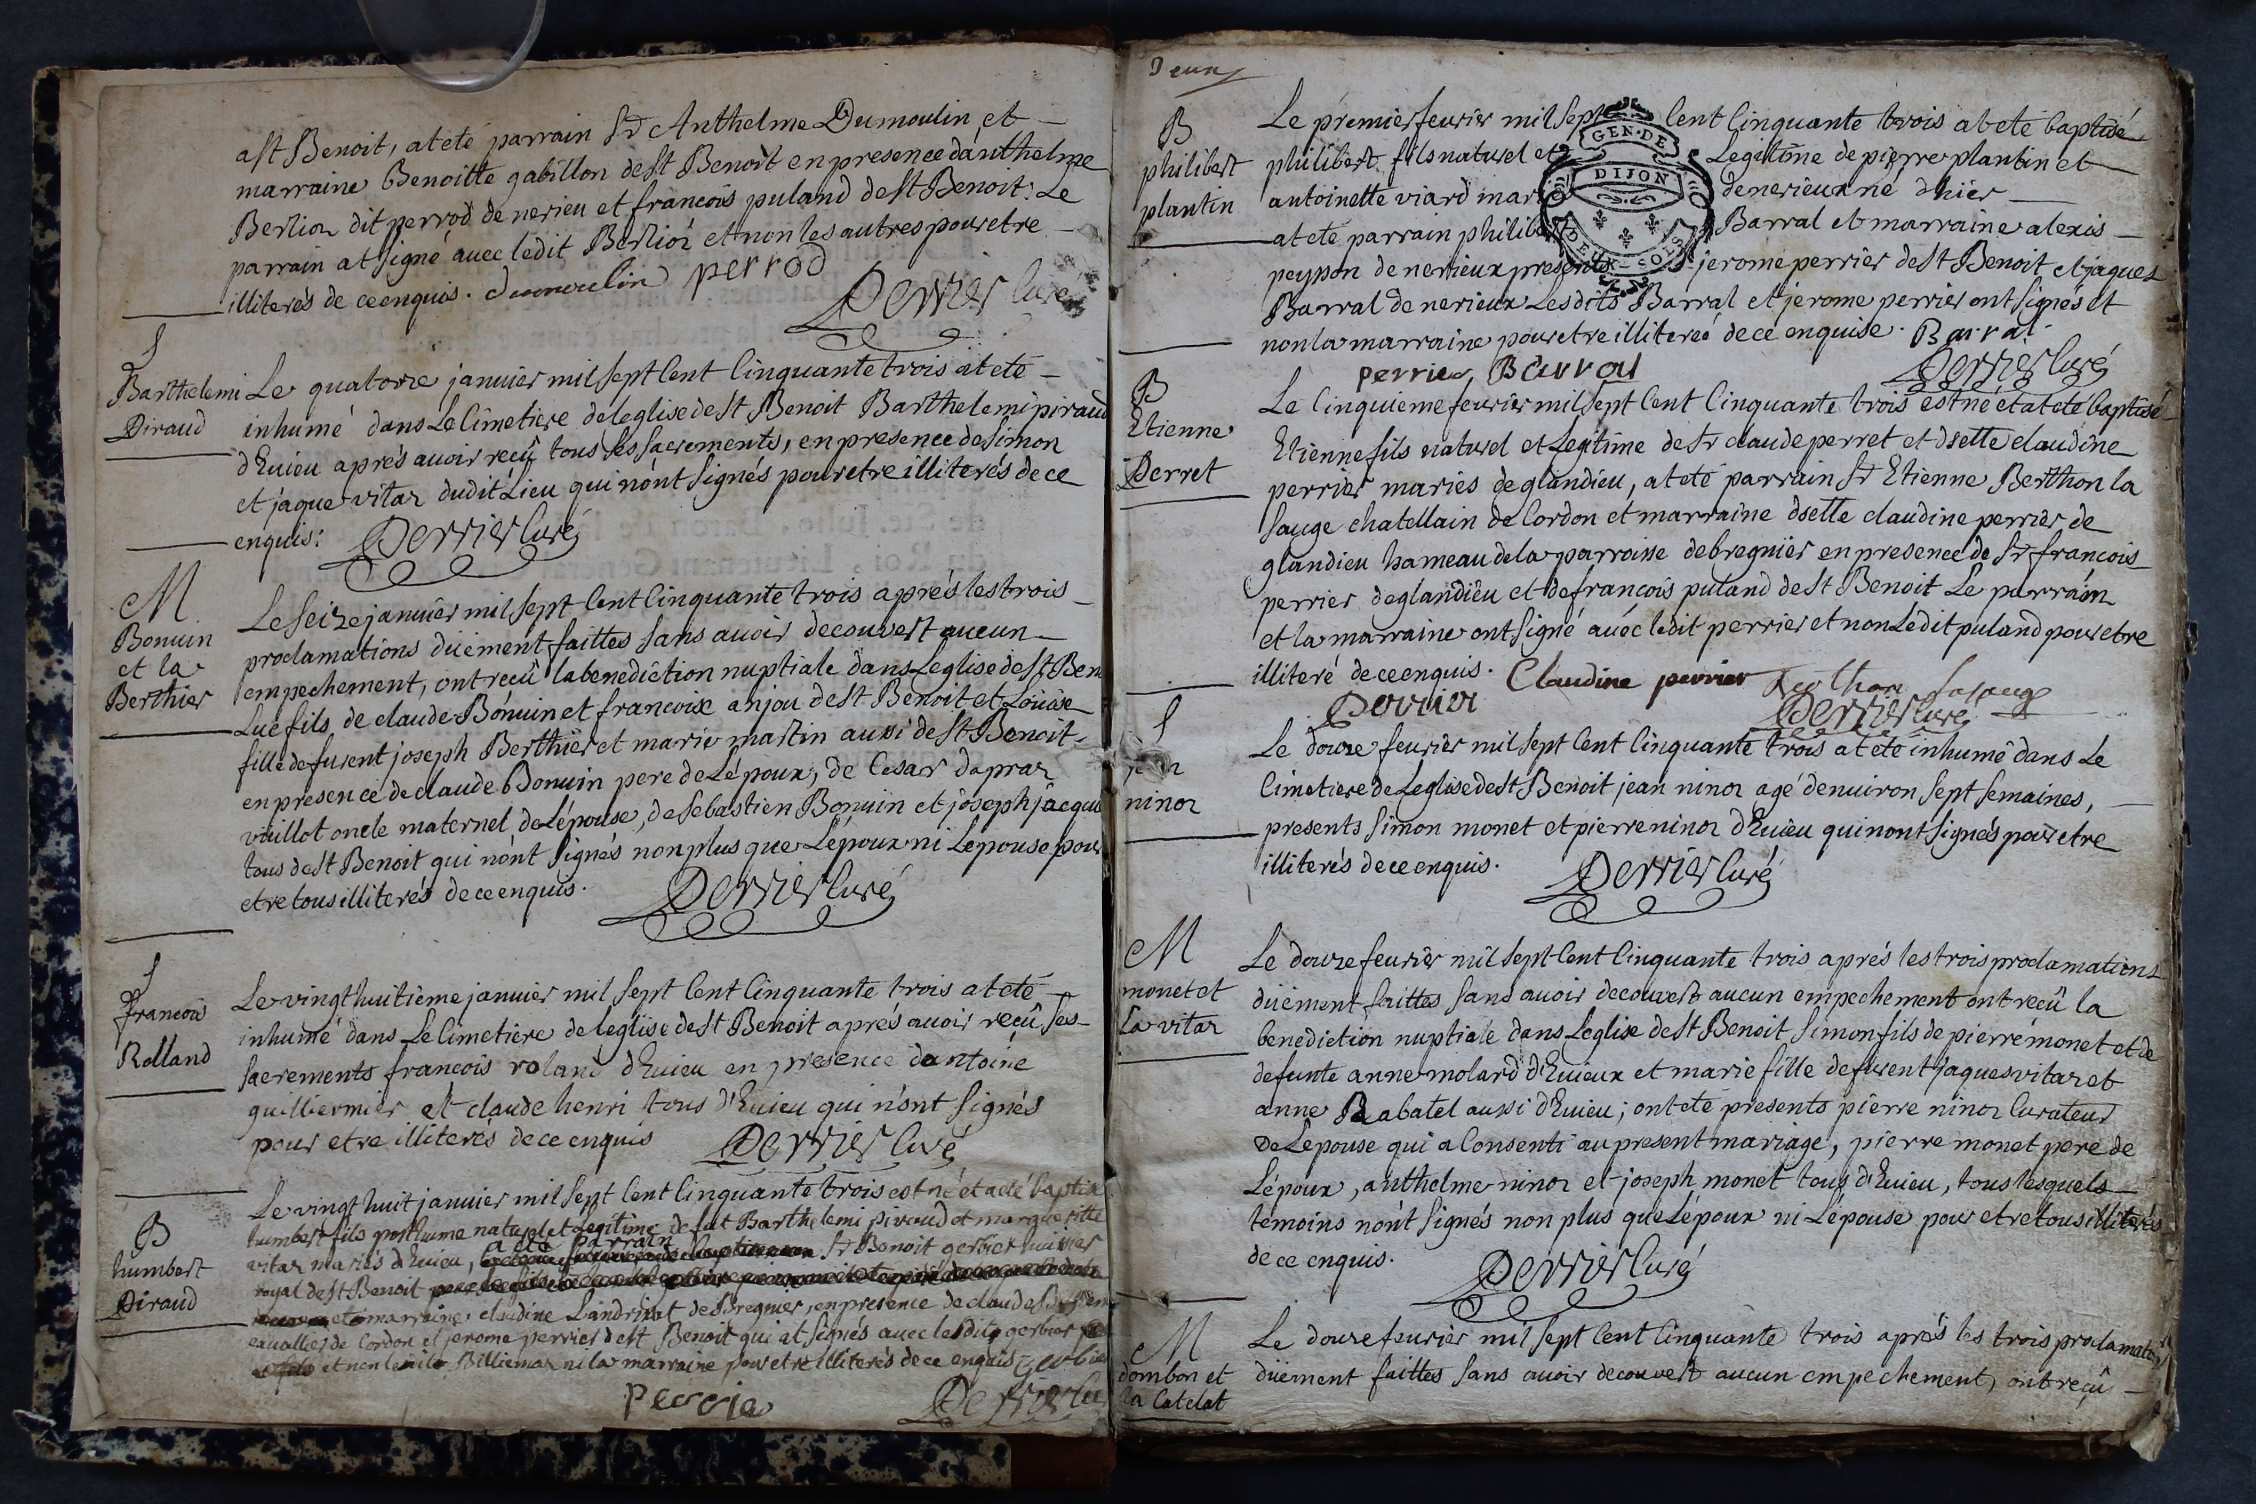 a st Benoit, at eté parrain Sr Anthelme Dumoulin, et
marraine Benoitte gabillon de st Benoit en presence danthelme
Berlion dit perrod de nerieu et francois puland de st Benoit: Le
parrain at signé avec ledit Berlion et non les autres pour etre
illiterés de ce enquis. dumoulin perrod
Perrier Curé
S
Barthelemi
Piraud
Le quatorze janvier mil sept Cent Cinquante trois at eté
inhumé dans Le Cimetiere de leglise de st Benoit Barthelemi piraud
d'Evieu aprés avoir recû tous ses sacrements, en presence de simon
et jaque vitaz dudit Lieu qui n'ont signés pour etre illiterés de ce
enquis: Perrier Curé
M
Bonvin
et la
Berthier
Le seize janvier mil sept Cent Cinquante trois aprés les trois
proclamations düement faittes sans avoir decouvert aucun
empechement, ont recû la benediction nuptiale dans Leglise de st Ben
Luc fils de claude Bonvin et francoise anjou de st Benoit et Loüise
fille de furent joseph Berthier et marie martin aussi de st Benoit.
en presence de claude Bonvin pere de Lépoux, de Cesar dapraz
vuillot oncle maternel de Lépouse, de sebastien Bonvin et joseph jacque
tous de st Benoit qui n'ont signés non plus que Lépoux ni Lepouse pour
etre tous illiterés de ce enquis.
Perrier Curé
S
francois
Rolland
Le vingt huitième janvier mil sept Cent Cinquante trois at eté
inhumé dans Le Cimetière de leglise de st Benoit aprés avoir recû ses
sacrements francois roland d'Evieu en presence dantoine
guilliermier et claude henri tous d'Evieu qui n'ont signés
pour etre illiterés de ce enquis Perrier Curé
B
humbert
Piraud
Le vingt huit janvier mil sept Cent Cinquante trois est né et a eté baptizé
humbert fils posthume naturel et Legitime de fut Barthelemi piraud et margueritte
a eté parrain
vitaz mariés d'Evieu, Sr Benoit gerbier huissier
royal de st Benoit
et marraine claudine Landrivet de Bregnier, en presence de claude
cavallier de Cordon et jerome perrier de st Benoit qui at signés avec ledit gerbier
et non Billiemaz ni la marraine pour etre illiterés de ce enquis Gerbier
perrie Perrier Cu
Deux
B
philibert
plantin
Le premier fevrier mil sept Cent Cinquante trois at eté baptisé
GEN. DE
DIJON
DEUX SOLS
philibert fils naturel et Legitime de pierre plantin et
antoinette viard mar de nerieux né d'hier
at eté parrain philibert Barral et marraine alexis
peysson de nerieux presents jerome perrier de st Benoit et jaques
Barral de nerieux Lesdits Barral et jerome perrier ont signés et
non la marraine pour etre illiteréé de ce enquise. Barral
perrier, Barral Perrier Curé
B
Etienne
Perret
Le Cinquieme fevrier mil sept Cent Cinquante trois est né et at eté baptisé
Etienne fils naturel et Legitime de Sr claude perret et dselle claudine
perrier mariés de glandieu, at eté parrain Sr Etienne Berthon la
sauge chatellain de Cordon et marraine dselle claudine perrier de
glandieu hameau de la parroisse de bregnier en presence de Sr francois
perrier de glandieu et de francois puland de st Benoit Le parrain
et la marraine ont signé avéc ledit perrier et non Ledit puland pour etre
illiteré de ce enquis. Claudine perrier Berthon Lasauge
Perrier Perrier Curé
S
ninoz
Le douze fevrier mil sept Cent Cinquante trois at eté inhumé dans Le
Cimetiere de Leglise de st Benoit jean ninoz agé denviron sept semaines,
presents simon monet et pierre ninoz d'Evieu qui nont signés pour etre
illiterés de ce enquis. Perrier Curé
M
monet et
La vitaz
Le douze fevrier mil sept Cent Cinquante trois aprés les trois proclamations
düement faittes sans avoir decouvert aucun empechement ont recû la
benediction nuptiale dans Léglise de st Benoit simon fils de pierre monet et de
defunte anne molard d'Evieux et marie fille de furent jaques vitaz et
anne Rabatel aussi d'Evieu; ont eté presents pierre ninoz Curateur
de Lépouse qui a Consenti au present mariage, pierre monet pere de
Lépoux, anthelme ninoz et joseph monet tous d'Evieu, tous lesquels
temoins n'ont signés non plus que Lépoux ni Lépouse pour etre tous illiterés
de ce enquis. Perrier Curé
M
dombon et
la Catelat
Le douze fevrier mil sept Cent Cinquante trois aprés les trois proclamations
düement faittes sans avoir decouvert aucun empechement, ont reçû